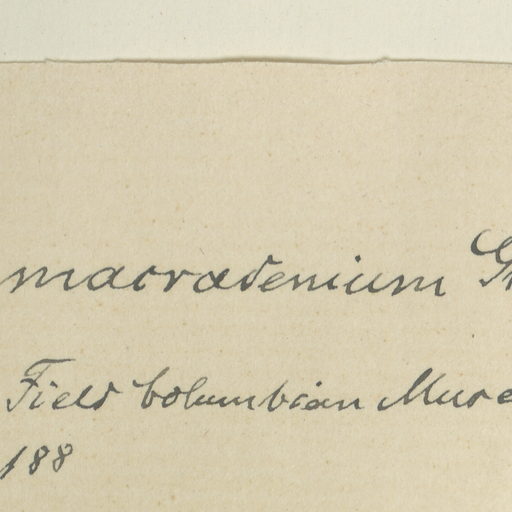 macradenium G
Field Columbian Muse
188